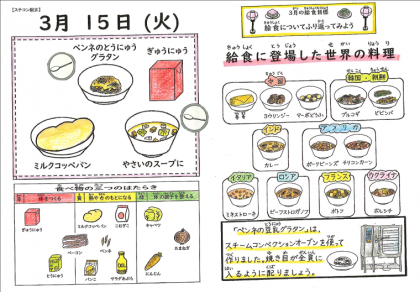 【スチコン献立】
3月 15日 (火)
ペンネのとうにゅう
グラタン
ぎゅうにゅう
ミルクコッペパン
やさいのスープに
食べ物の三つのはたらき
ぎゅうにゅう
ミルクコッペパン
こむぎこ
キャベツ
たまねぎ
ベーコン
ペンネ
パンこ
サラダあぶら
にんじん
3月の給食目標
給食についてふり返ってみよう
給食に登場した世界の料理
中国
韓国・朝鮮
ヨウリンジー
マーボどうふ
プルコギ
ビビンバ
インド
アメリカ
カレー
ポークビーンズ
チリコンカーン
イタリア
ロシア
フランス
ウクライナ
ミネストローネ
ビーフストロガノフ
ポトフ
ボルシチ
「ペンネの豆乳グラタン」は、
スチームコンベクションオーブンを使って
作りました。焼き目が全員に
入るように配りましょう。